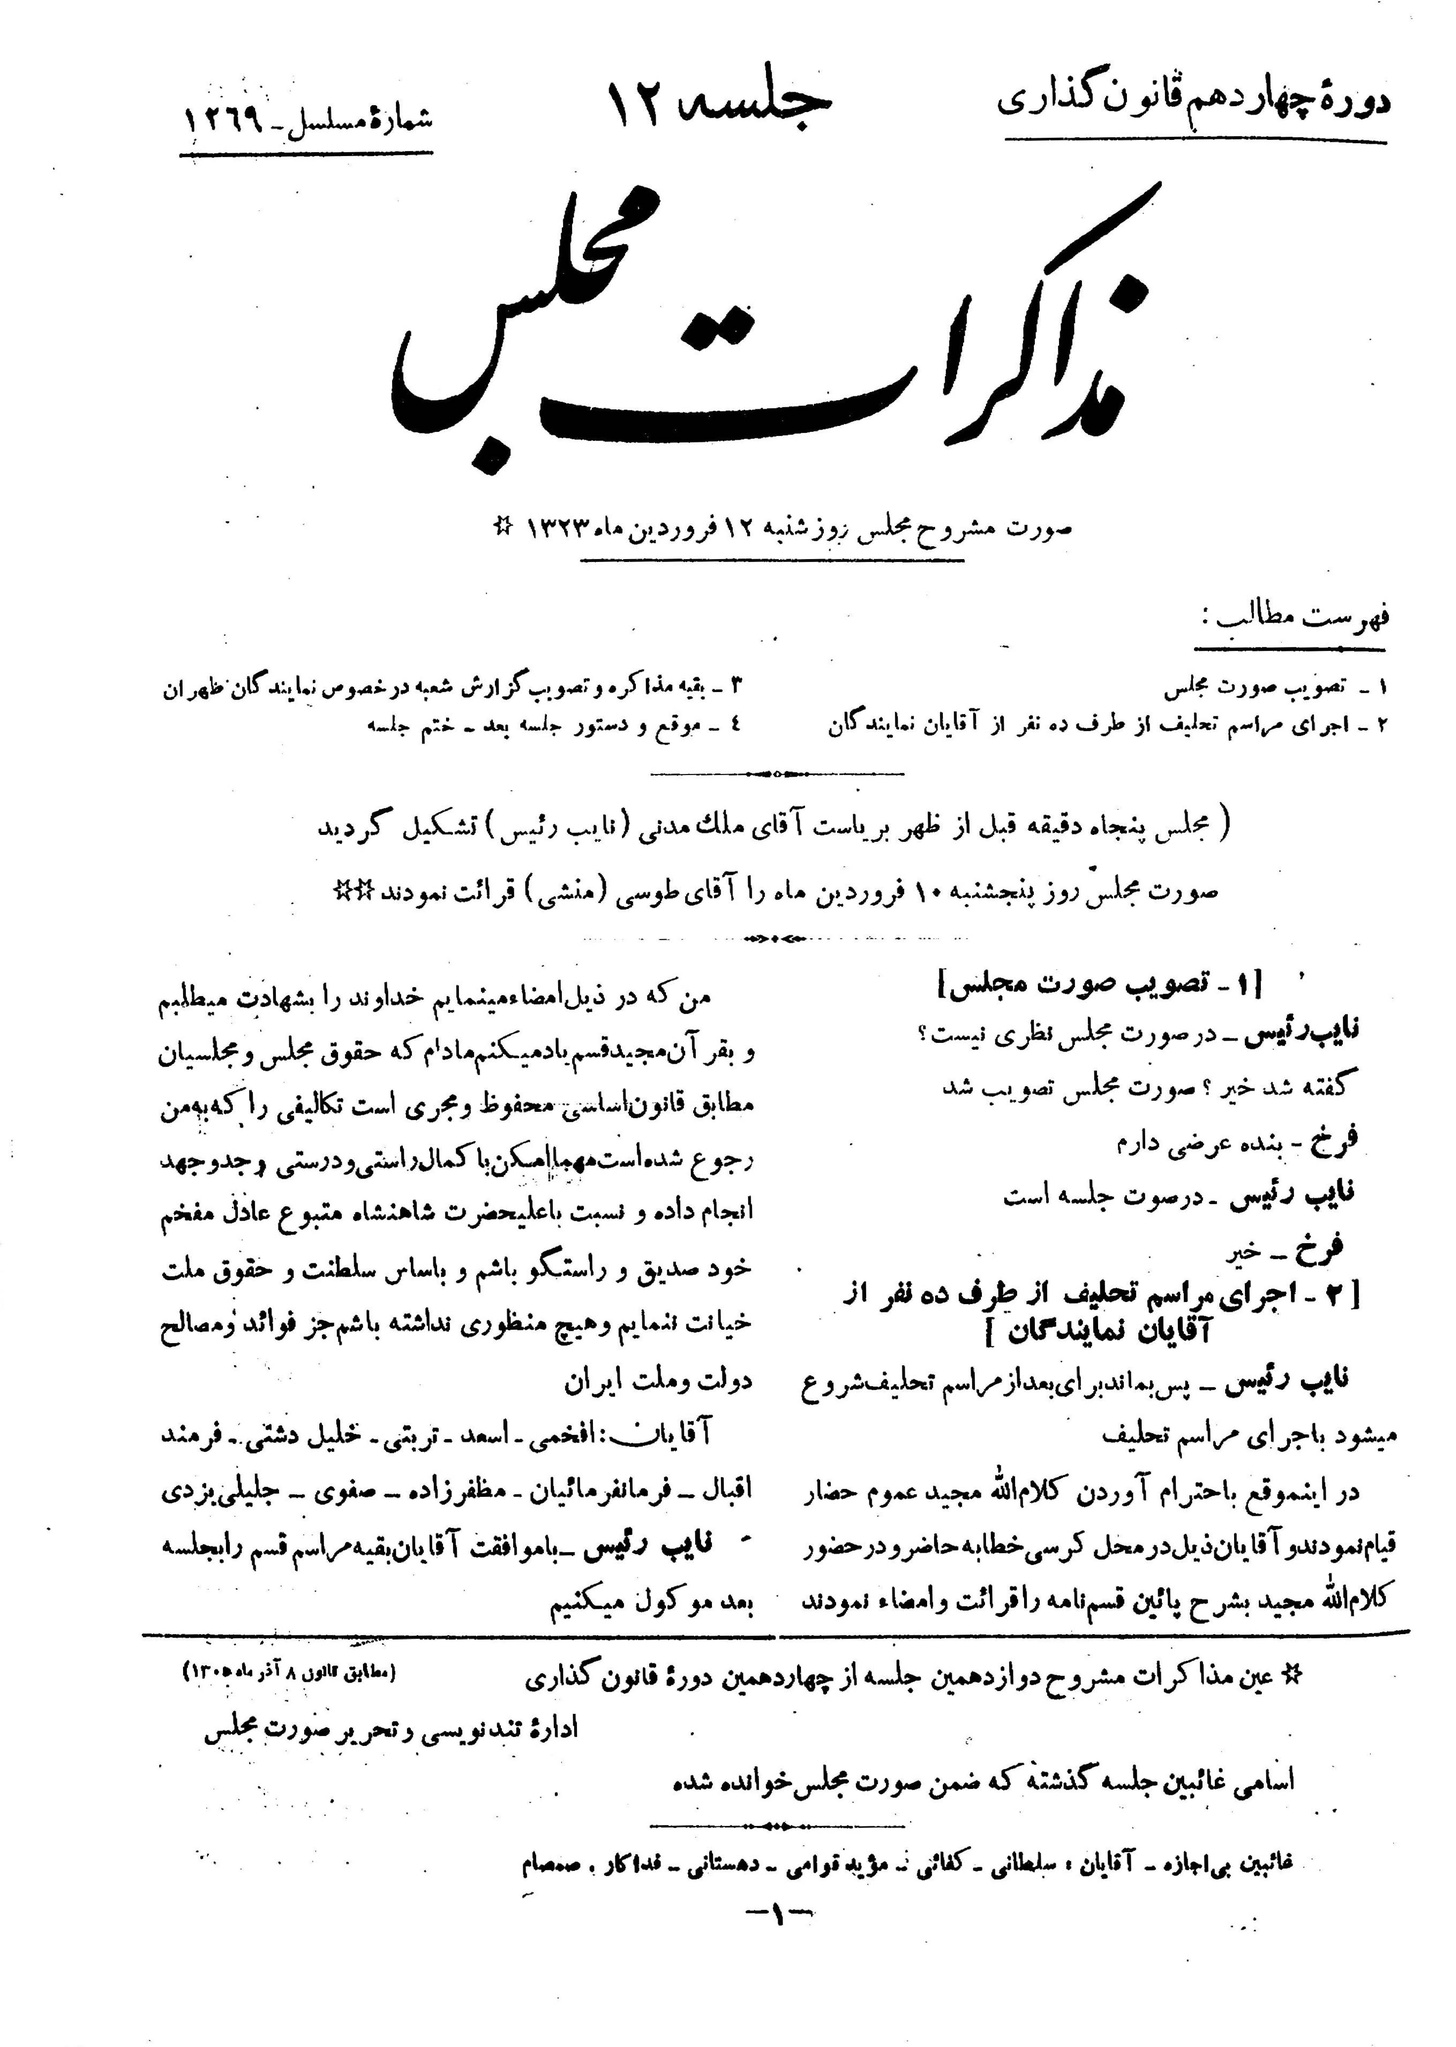 دورهٔ چهاردهم قانون گذاری
جلسه ۱۲
شمارهٔ مسلسل - ۱۲۶۹
مذاکرات مجلس
صورت مشروح مجلس روز شنبه ۱۲ فروردین ماه ۱۳۲۳ ☆
فهرست مطالب :
۱ - تصویب صورت مجلس
۲ - اجرای مراسم تحلیف از طرف ده نفر از آقایان نمایندگان
۳ - بقیه مذاکره و تصویب گزارش شعبه در خصوص نمایندگان طهران
٤ - موقع و دستور جلسه بعد - ختم جلسه
( مجلس پنجاه دقیقه قبل از ظهر بریاست آقای ملك مدنی (نایب رئیس) تشکیل گردید
صورت مجلس روز پنجشنبه ۱۰ فروردین ماه را آقای طوسی (منشی) قرائت نمودند ☆☆
[۱ - تصویب صورت مجلس]
نایب رئیس - در صورت مجلس نظری نیست ؟
گفته شد خیر ؟ صورت مجلس تصویب شد
فرخ - بنده عرضی دارم
نایب رئیس - درصوت جلسه است
فرخ - خیر
[ ۲ - اجرای مراسم تحلیف از طرف ده نفر از
آقایان نمایندگان ]
نایب رئیس - پس بماند برای بعد از مراسم تحلیف شروع
میشود با جرای مراسم تحلیف
در اینموقع باحترام آوردن کلام‌الله مجید عموم حضار
قیام نمودند و آقایان ذیل در محل کرسی خطابه حاضر و در حضور
کلام‌الله مجید بشرح پائین قسم نامه را قرائت و امضاء نمودند
من که در ذیل امضاء مینمایم خداوند را بشهادت میطلبم
و بقر آن مجید قسم یاد میکنم مادام که حقوق مجلس و مجلسیان
مطابق قانون اساسی محفوظ و مجری است تکالیفی را که به من
رجوع شده است مهما امکن با کمال راستی و درستی و جد و جهد
انجام داده و نسبت باعلیحضرت شاهنشاه متبوع عادل مفخم
خود صدیق و راستگو باشم و باساس سلطنت و حقوق ملت
خیانت ننمایم و هیچ منظوری نداشته باشم جز فوائد و مصالح
دولت و ملت ایران
آقایان : افخمی - اسعد - تربتی - خلیل دشتی - فرمند
اقبال - فرمانفرمائیان - مظفرزاده - صفوی - جلیلی یزدی
نایب رئیس - با موافقت آقایان بقیه مراسم قسم را بجلسه
بعد موکول میکنیم
☆ عین مذاکرات مشروح دوازدهمین جلسه از چهاردهمین دورهٔ قانون گذاری
(مطابق قانون ۸ آذر ماه ۱۳۰۵)
ادارهٔ تندنویسی و تحریر صورت مجلس
اسامی غائبین جلسه گذشته که ضمن صورت مجلس خوانده شده
غائبین بی اجازه - آقایان : سلطانی - کفائی - مؤید قوامی - دهستانی - فداکار . صمصام
-۱-